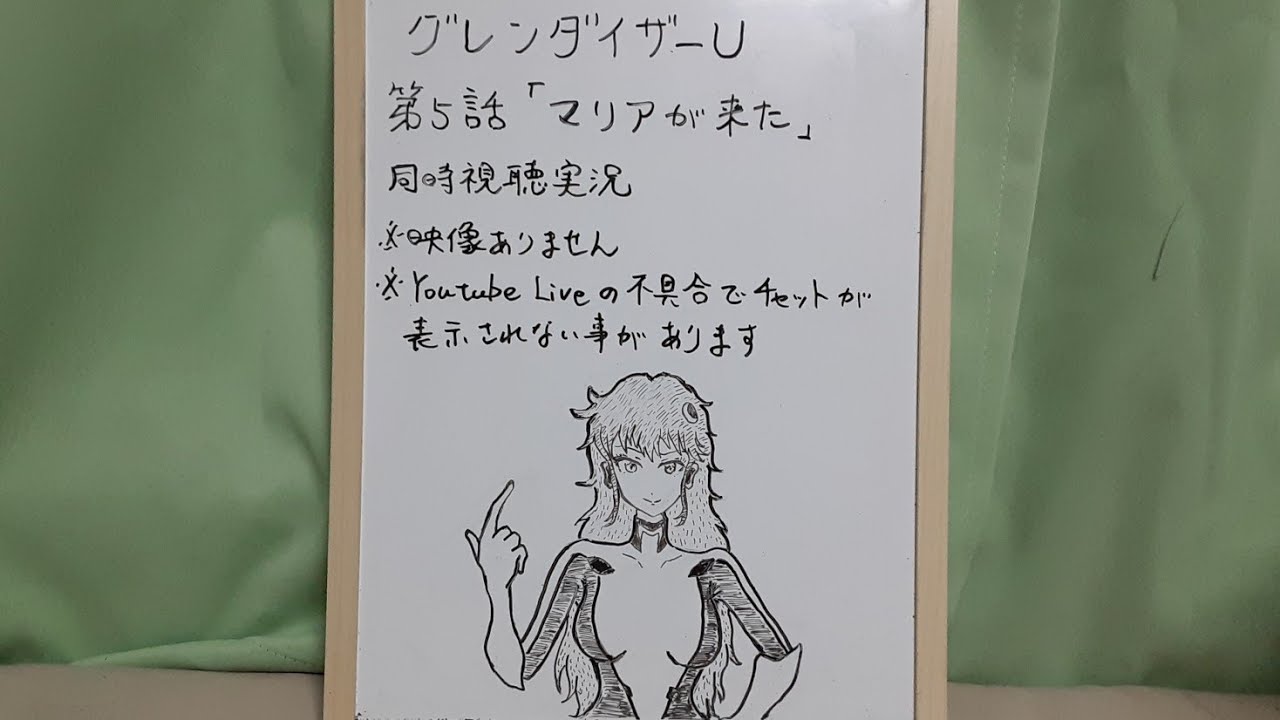 グレンダイザーU
第5話「マリアが来た」
同時視聴実況
※映像ありません
※Youtube Liveの不具合でチャットが
表示されない事があります